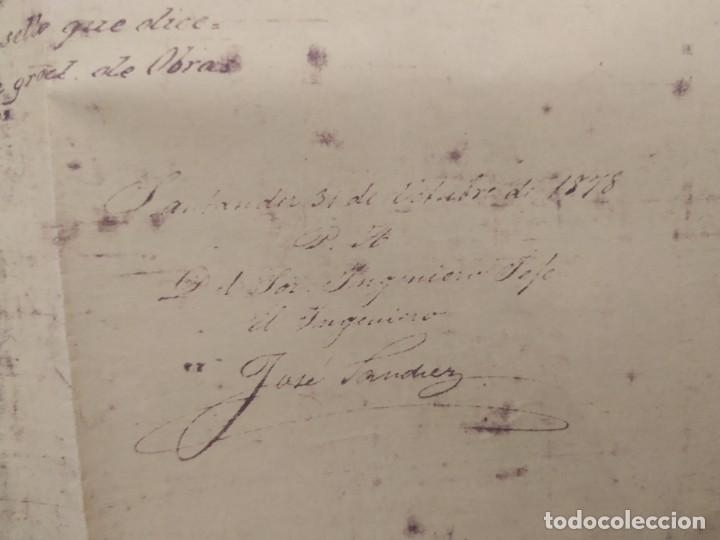 sello que dice=
gral. de Obras
Santander 31 de Octubre de 1878
P. A
D. del Sor. Ingeniero Jefe
el Ingeniero
José Sanchez
todocoleccion